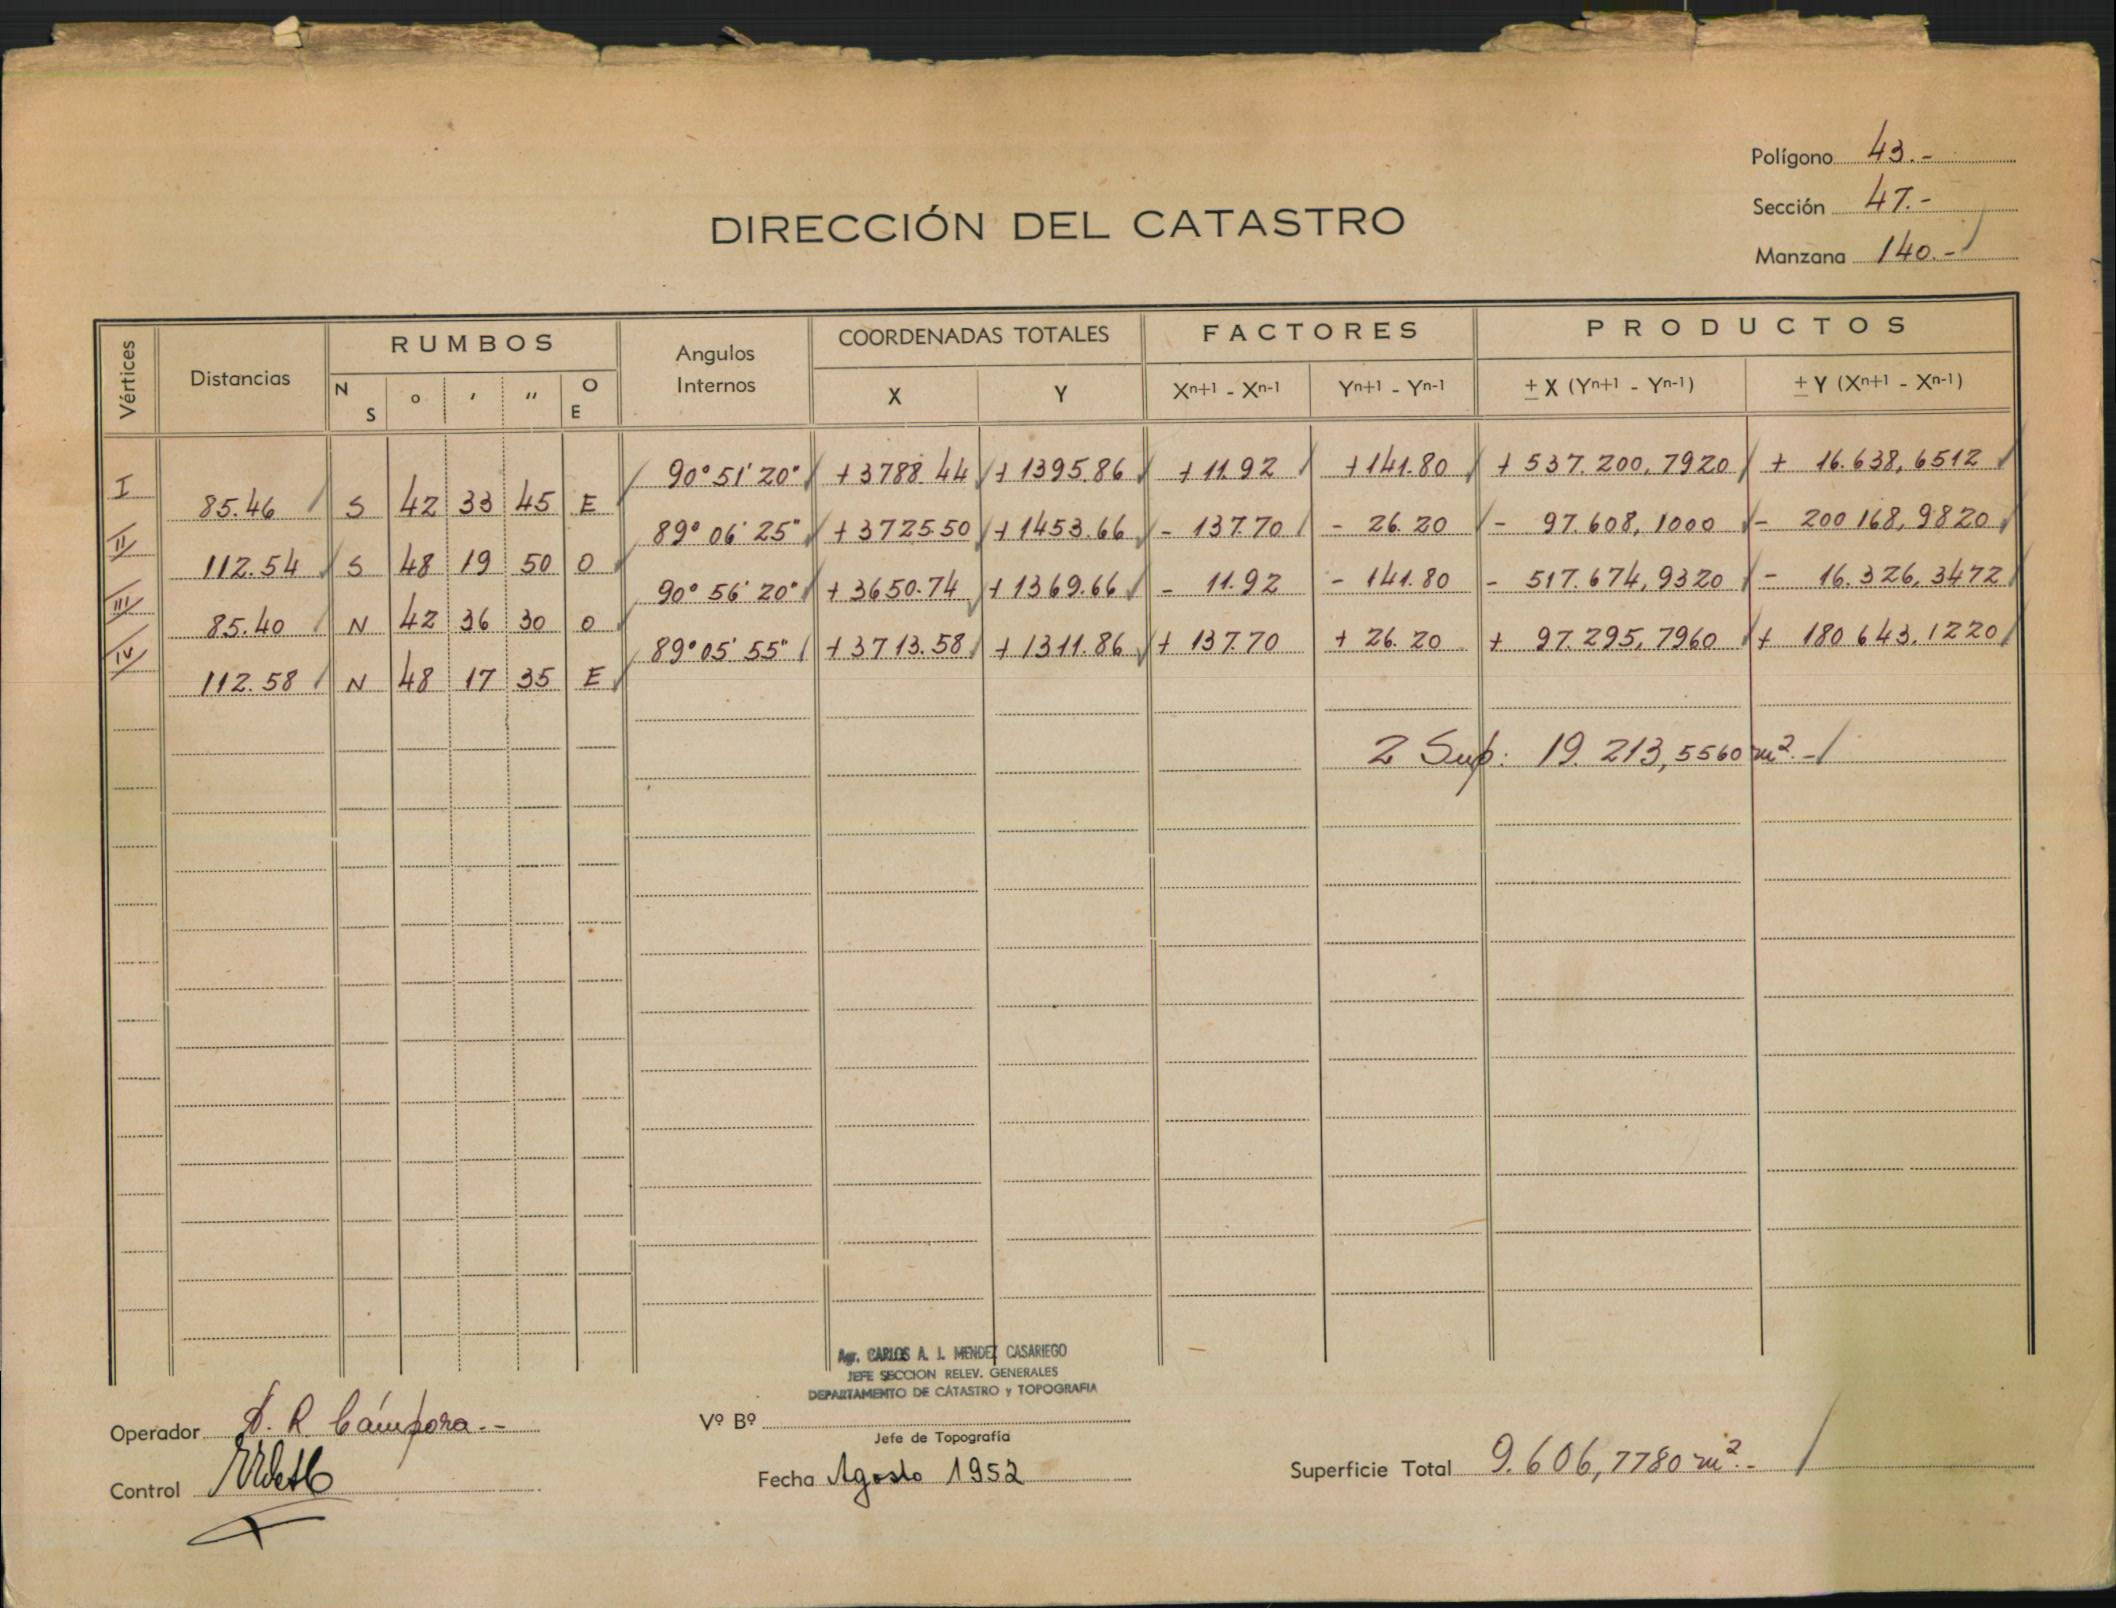 Polígono 43.-
Sección 47.-
Manzana 140.-
DIRECCIÓN DEL CATASTRO
Vértices Distancias RUMBOS Angulos Internos COORDENADAS TOTALES FACTORES PRODUCTOS
N S ° ' " O E X Y Xn+1 - Xn-1 Yn+1 - Yn-1 ± X (Yn+1 - Yn-1) ± Y (Xn+1 - Xn-1)
I 90° 51' 20" + 3788.44 + 1395.86 + 11.92 + 141.80 + 537.200,7920 + 16.638,6512
85.46 S 42 33 45 E
II 89° 06' 25" + 3725.50 + 1453.66 - 137.70 - 26.20 - 97.608,1000 - 200 168,9820
112.54 S 48 19 50 O
III 90° 56' 20" + 3650.74 + 1369.66 - 11.92 - 141.80 - 517.674,9320 - 16.326,3472
85.40 N 42 36 30 O
IV 89° 05' 55" + 3713.58 + 1311.86 + 137.70 + 26.20 + 97.295,7960 + 180 643.1220
112.58 N 48 17 35 E
2 Sup: 19.213,5560 m².-
Agr. CARLOS A. J. MENDEZ CASARIEGO
JEFE SECCION RELEV. GENERALES
DEPARTAMENTO DE CATASTRO y TOPOGRAFIA
Operador D. R. Cámpora.-
Vº Bº
Jefe de Topografía
Control
Fecha Agosto 1952
Superficie Total 9.606,7780 m².-